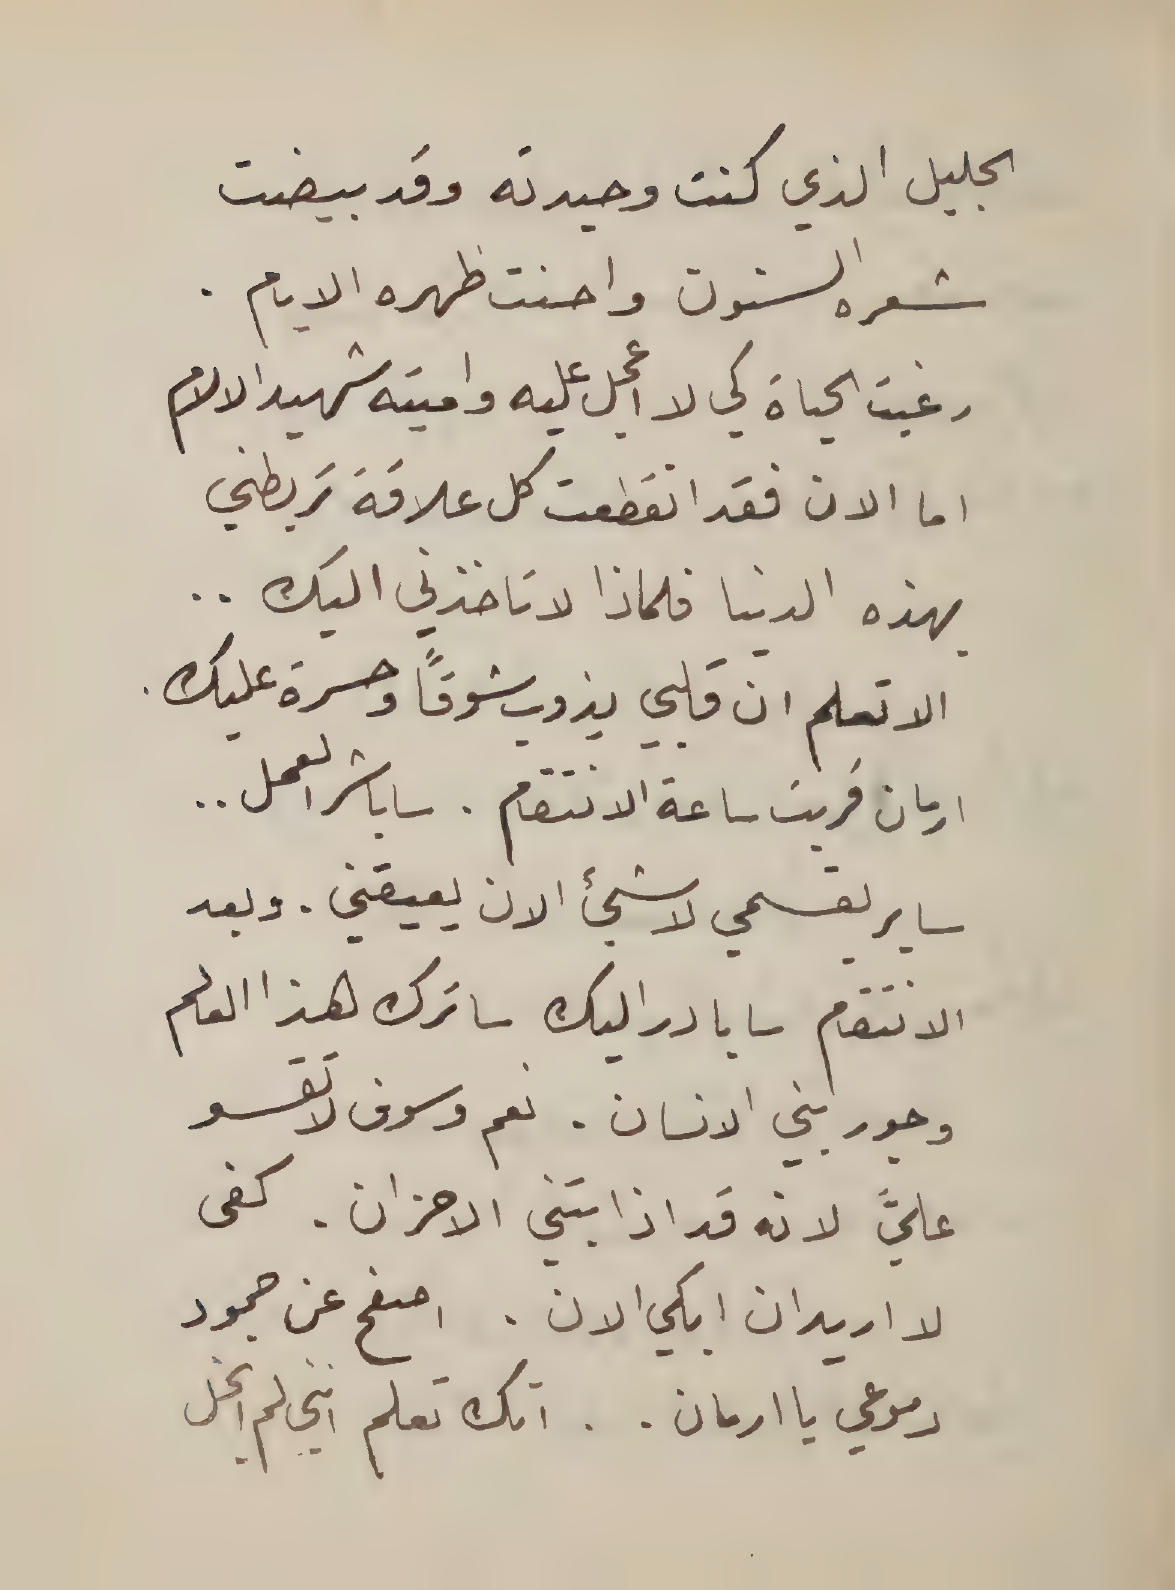 الجليل الذي كنت وحيدته وقد بيضت
شعره السنون واحنت ظهره الايام .
رغبت الحياة كي لا اعجل عليه واميته شهيد الالام
اما الان فقد انقطعت كل علاقة تربطني
بهذه الدنيا فلماذا لا تاخذني اليك ..
الا تعلم ان قلبي يذوب شوقاً وحسرة عليك .
ارمان قربت ساعة الانتقام . ساباشر العمل ..
سابر بقسمي لا شيئ الان يعيقني . وبعد
الانتقام سابادر اليك ساترك هذا العالم
وجور بني الانسان . نعم وسوف لا تقسو
عليَّ لانه قد اذابتني الاحزان . كفى
لا اريد ان ابكي الان . اصفح عن جمود
دموعي يا ارمان . . انك تعلم انني لم ابخل